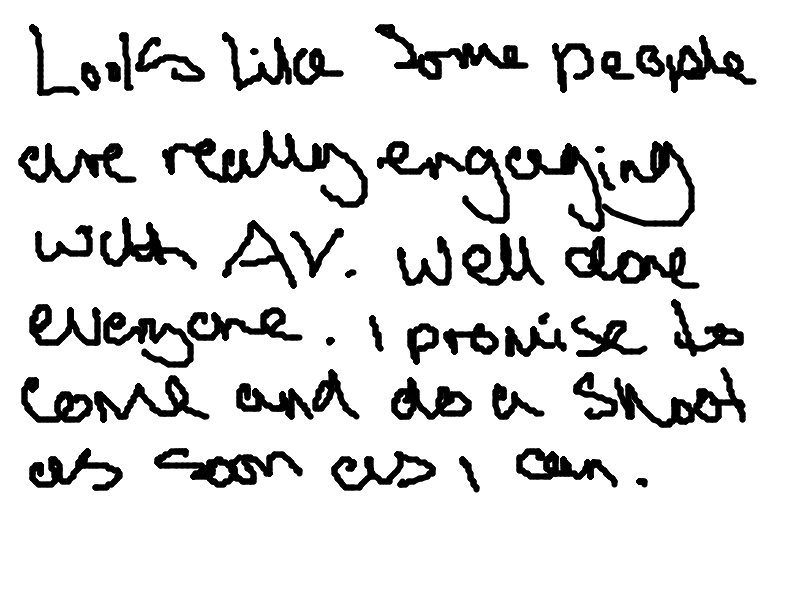 Looks like some people
are really engaging
with AV. Well done
everyone. I promise to
come and do a shoot
as soon as I can.